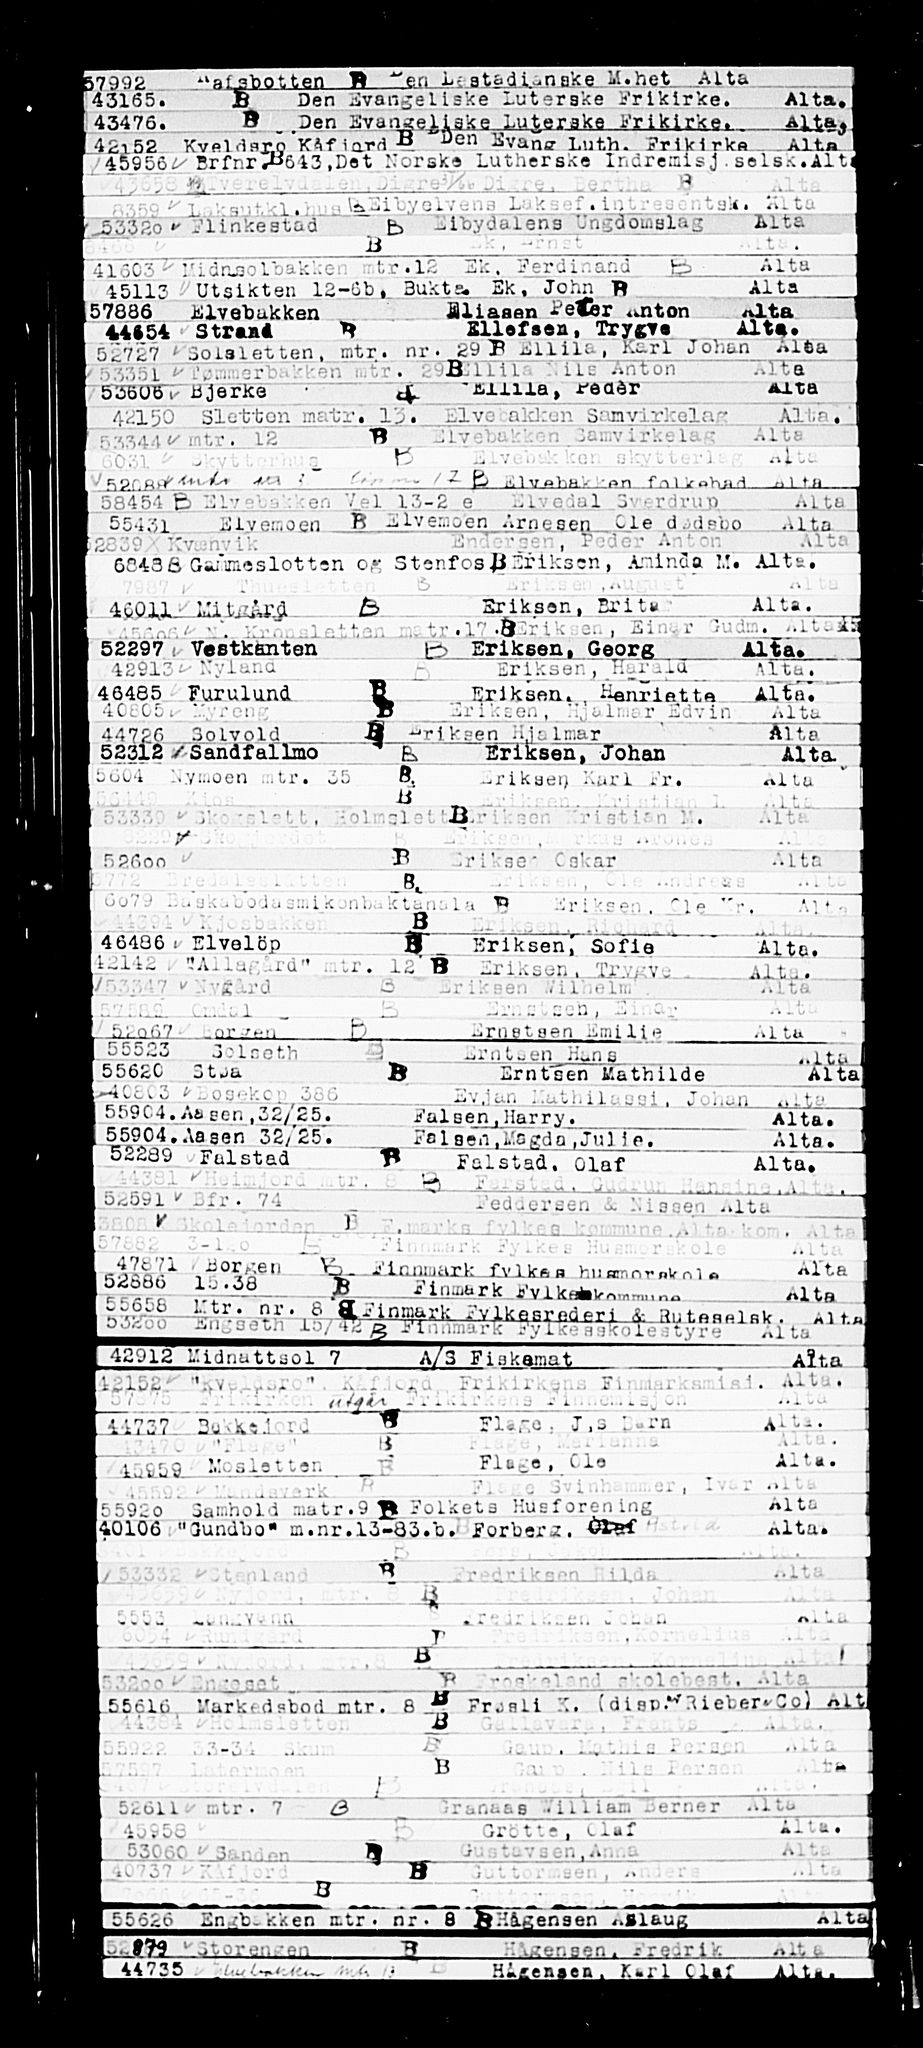 57992 afsbotten B en Læstadianske M.het Alta
43165. B Den Evangeliske Luterske Frikirke. Alta.
43476. B Den Evangeliske Luterske Frikirke. Alta,
42152 Kveldsro Kåfjord B Den Evang Luth. Frikirke Alta
45956 Brfnr. B 643, Det Norske Lutherske Indremisj.selsk. Alta
43658 Digre, Bertha B Alta
8359 Laksutkl.hus B Eibyelvens Laksef.intresentsk. Alta
53320 Flinkestad B Eibydalens Ungdomslag Alta
B Ek, Ernst Alta.
41603 Midnsolbakken mtr.12 Ek, Ferdinand B Alta
45113 Utsikten 12-6b, Bukta Ek, John B Alta
57886 Elvebakken Eliasen Peter Anton Alta
44654 Strand B Ellefsen, Trygve Alta.
52727 Solsletten, mtr. nr. 29 B Ellila, Karl Johan Alta
53351 Tømmerbakken mtr. 29 B Ellila Nils Anton Alta
53606 Bjerke Ellila, Peder Alta
42150 Sletten matr. 13. Elvebakken Samvirkelag Alta.
53344 mtr. 12 B Elvebakken Samvirkelag Alta
6031 Skytterhus B Elvebakken skytterlag Alta
52088 12 B Elvebakken folkebad Alta
58454 B Elvebakken Vel 13-2 e Elvedal Sverdrup Alta
55431 Elvemoen B Elvemoen Arnesen Ole dødsbo Alta
52839 Kvænvik Endersen, Peder Anton Alta
6848 B Gammeslotten og Stenfos B Eriksen, Aminda M. Alta.
7987 Thuesletten B Eriksen, August Alta
46011 Mitgård B Eriksen, Brita Alta.
45606 N. Kronsletten matr.17. B Eriksen, Einar Gudm. Alta
52297 Vestkanten B Eriksen, Georg Alta.
42913 Nyland B Eriksen, Harald Alta.
46485 Furulund B Eriksen, Henriette Alta.
40805 Myreng B Eriksen, Hjalmar Edvin Alta
44726 Solvold B Eriksen Hjalmar Alta
52312 Sandfallmo B Eriksen, Johan Alta.
5604 Nymoen mtr. 35 B. Eriksen Karl Fr. Alta
56449 B Eriksen, Kristian Alta
53339 Skogslett, Holmslett B Eriksen Kristian M. Alta
B Eriksen, Markus Alta
52600 B Eriksen Oskar Alta
5772 B. Eriksen, Ole Andreas Alta
6079 Baskabodasmikonbaktanala B Eriksen, Ole Kr. Alta
44394 Kjosbakken B Eriksen, Richard Alta.
46486 Elveløp B Eriksen, Sofie Alta.
42142 "Allagård" mtr. 12 B Eriksen, Trygve Alta.
53347 Nygård B Eriksen Wilhelm Alta
57589 Omdal B Ernstsen, Einar Alta
52067 Borgen B Ernstsen Emilie Alta
55523 Solseth B Erntsen Hans Alta
55620 Støa B Erntsen Mathilde Alta
40803 Bosekop 386 Evjan Mathilassi, Johan Alta
55904. Aasen,32/25. Falsen,Harry. Alta.
55904. Aasen 32/25. Falsen,Magda,Julie. Alta.
52289 Falstad B Falstad, Olaf Alta.
44381 Heimjord mtr. 8 B Farstad, Gudrun Hansine, Alta.
52591 Bfr. 74 Feddersen & Nissen Alta
3808 Skolejorden B F.marks fylkes kommune, Alta kom. Alta
57882 B Finnmark Fylkes Husmorskole Alta
47871 Borgen B Finnmark fylkes husmorskole Alta
52886 15.38 B Finmark Fylkeskommune Alta
55658 Mtr. nr. 8 B Finmark Fylkesrederi & Ruteselsk. Alta
53200 Engseth 15/42 B Finnmark Fylkesskolestyre Alta
42912 Midnattsol 7 A/S Fiskemat Alta
42152 "Kveldsro", Kåfjord Frikirkens Finmarksmisj. Alta.
57875 Frikirken utgår Frikirkens Finnemisjon Alta
44737 Bakkejord B Flage, J,s Barn Alta.
43470 "Flage" B Flage, Marianna Alta.
45959 Mosletten B Flage, Ole Alta.
45592 Mandsverk B Flage Svinhammer, Ivar Alta
55920 Samhold matr.9 B Folkets Husforening Alta
40106 "Gundbo" m.nr.13-83.b. B Forberg, Olaf Astrid Alta.
B Alta.
53332 Stenland B Fredriksen Hilda Alta
45659 Nyjord, mtr. 8 B Fredriksen, Johan Alta
5553 Langvann Fredriksen Johan Alta
6054 Fredriksen, Kornelius Alta
Nyjord, mtr.8 B Fredriksen, Kornelius Alta
53200 Engeset B Froskeland skolebest. Alta
55616 Markedsbod mtr. 8 B Frøsli K. (disp. Rieber Co) Alt
44384 Holmsletten B Gallavara, Frants Alta.
55922 33-34 Skum B Gaup, Mathis Persen Alta
57597 Latermoen B Gaup, Nils Persen Alta
B Alta.
52611 mtr. 7 B Granaas William Berner Alta
45958 B Grötte, Olaf Alta.
53060 Sanden B Gustavsen,Anna Alta
40737 Kåfjord B Guttormsen, Anders Alta
B Guttormsen, Alta
55626 Engbakken mtr. nr. 8 B Hågensen Aslaug Alta
52879 Storengen B Hågensen, Fredrik Alta
44735 Elvebakken mtr B Hågensen, Karl Olaf Alta.